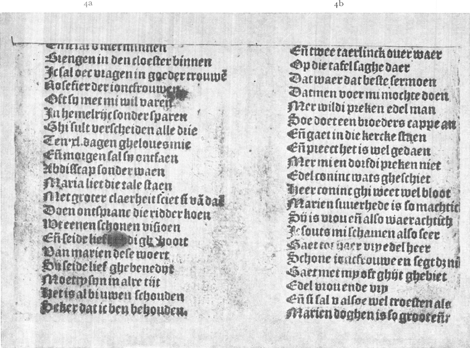 4a
En ic sal v met minnen
Brengen in den cloester binnen
Jc sal oec vragen in goeder trouwē
Rosefier der ioncfrouwen
Oft so met mi wil varen
Jn hemelrijc sonder sparen
Ghi sult verscheiden alle drie
Ten .xl. dagen gheloues mie
En̄ morgen sal sy ontfaen
Abdisscap sonder waen
Maria liet die tale staen
Met groter claerheit sciet si vā daē
Doen ontspranc die ridder koen
Wt eenen schonen visioen
En̄ seide lief ghi hoort
Van marien dese woert
Sy seide lief ghebenedyt
Moetty syn in alre tijt
Het is al bi uwen schouden
Seker dat ic ben behouden.
4b
En̄ twee taerlinck ouer waer
Op die tafel saghe daer
Dat waer dat beste sermoen
Datmen voer mi mochte doen
Mer wildi preken edel man
Soe doet een broeders cappe an
En̄ gaet in die kercke staen
En̄ preect het is wel gedaen
Mer mi en dorfdi preken niet
Edel coninc wats gheschiet
Heer coninc ghi weet wel bloot
Marien suuerhede is so machtic
Sy is vrou en̄ also waerachtich
Jc souts mi schamen also seer
Gaet tot haer vry edel heer
Schone ioncfrouwe en segt dz ni
Gaet met my oft ghijt ghebiet
Edel vrou ende vry
En̄ si sal v alsoe wel troesten als
Marien doghen is so groot en̄